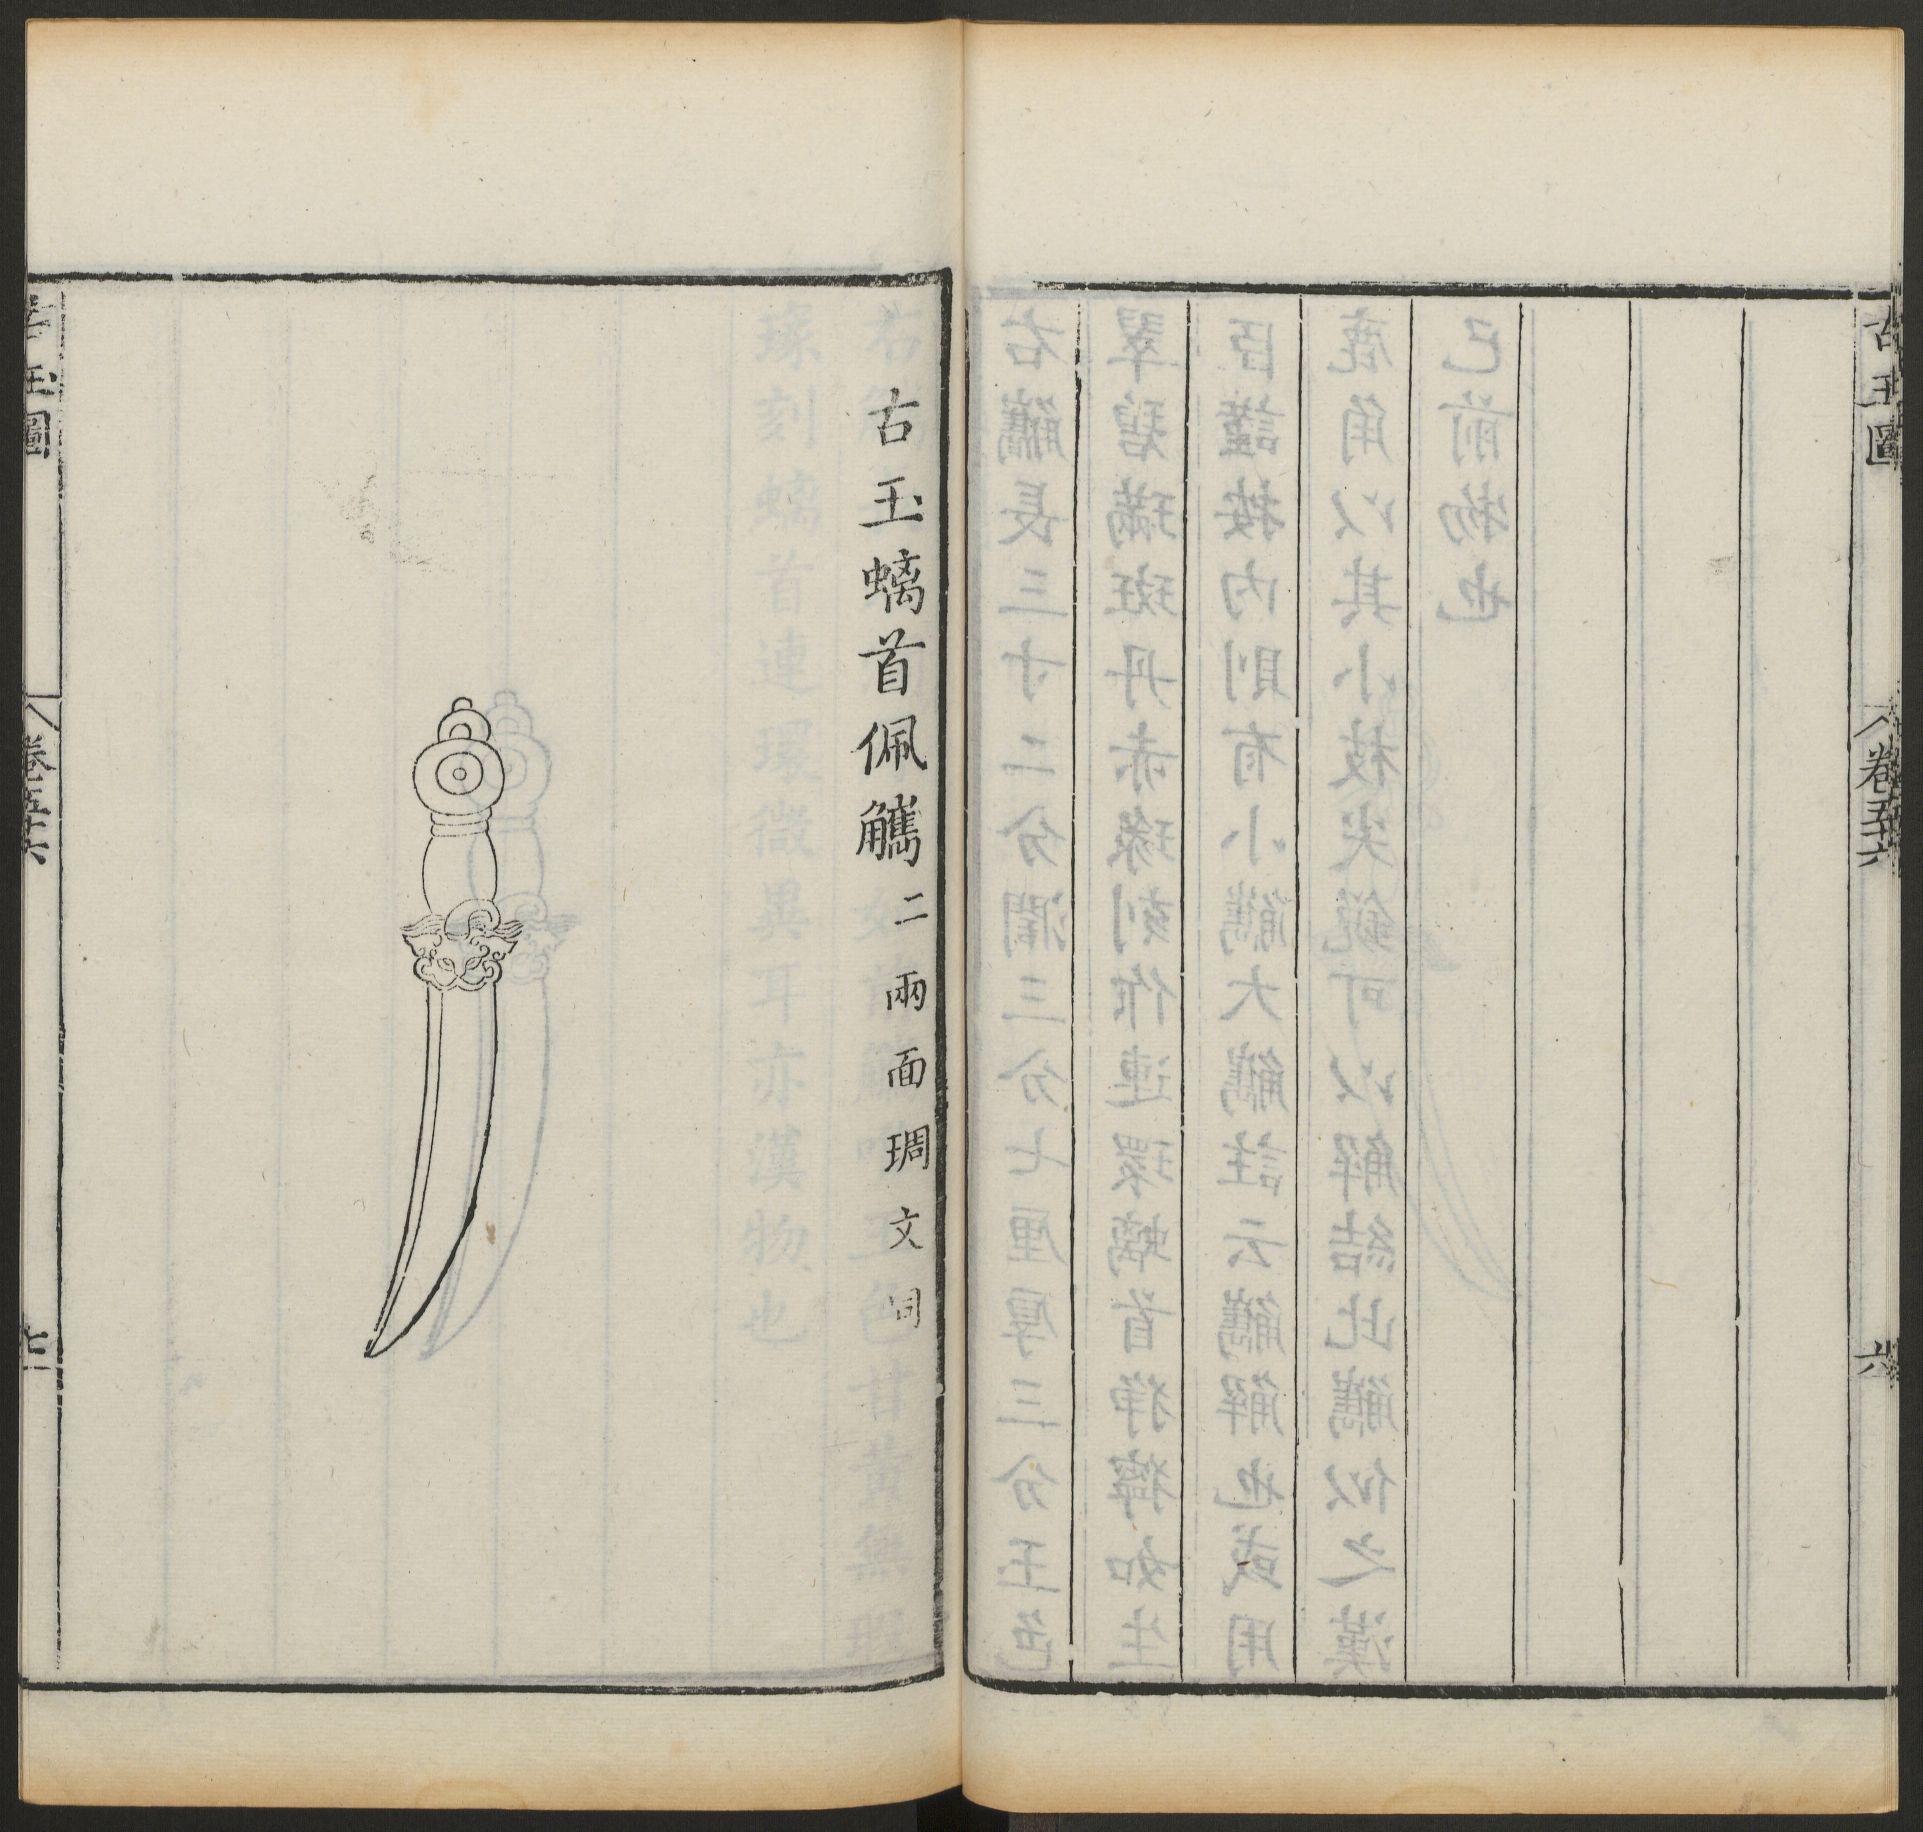 古玉圖
卷五十六
六
古玉螭首佩觿二兩面琱文同
古玉圖
卷五十六
七